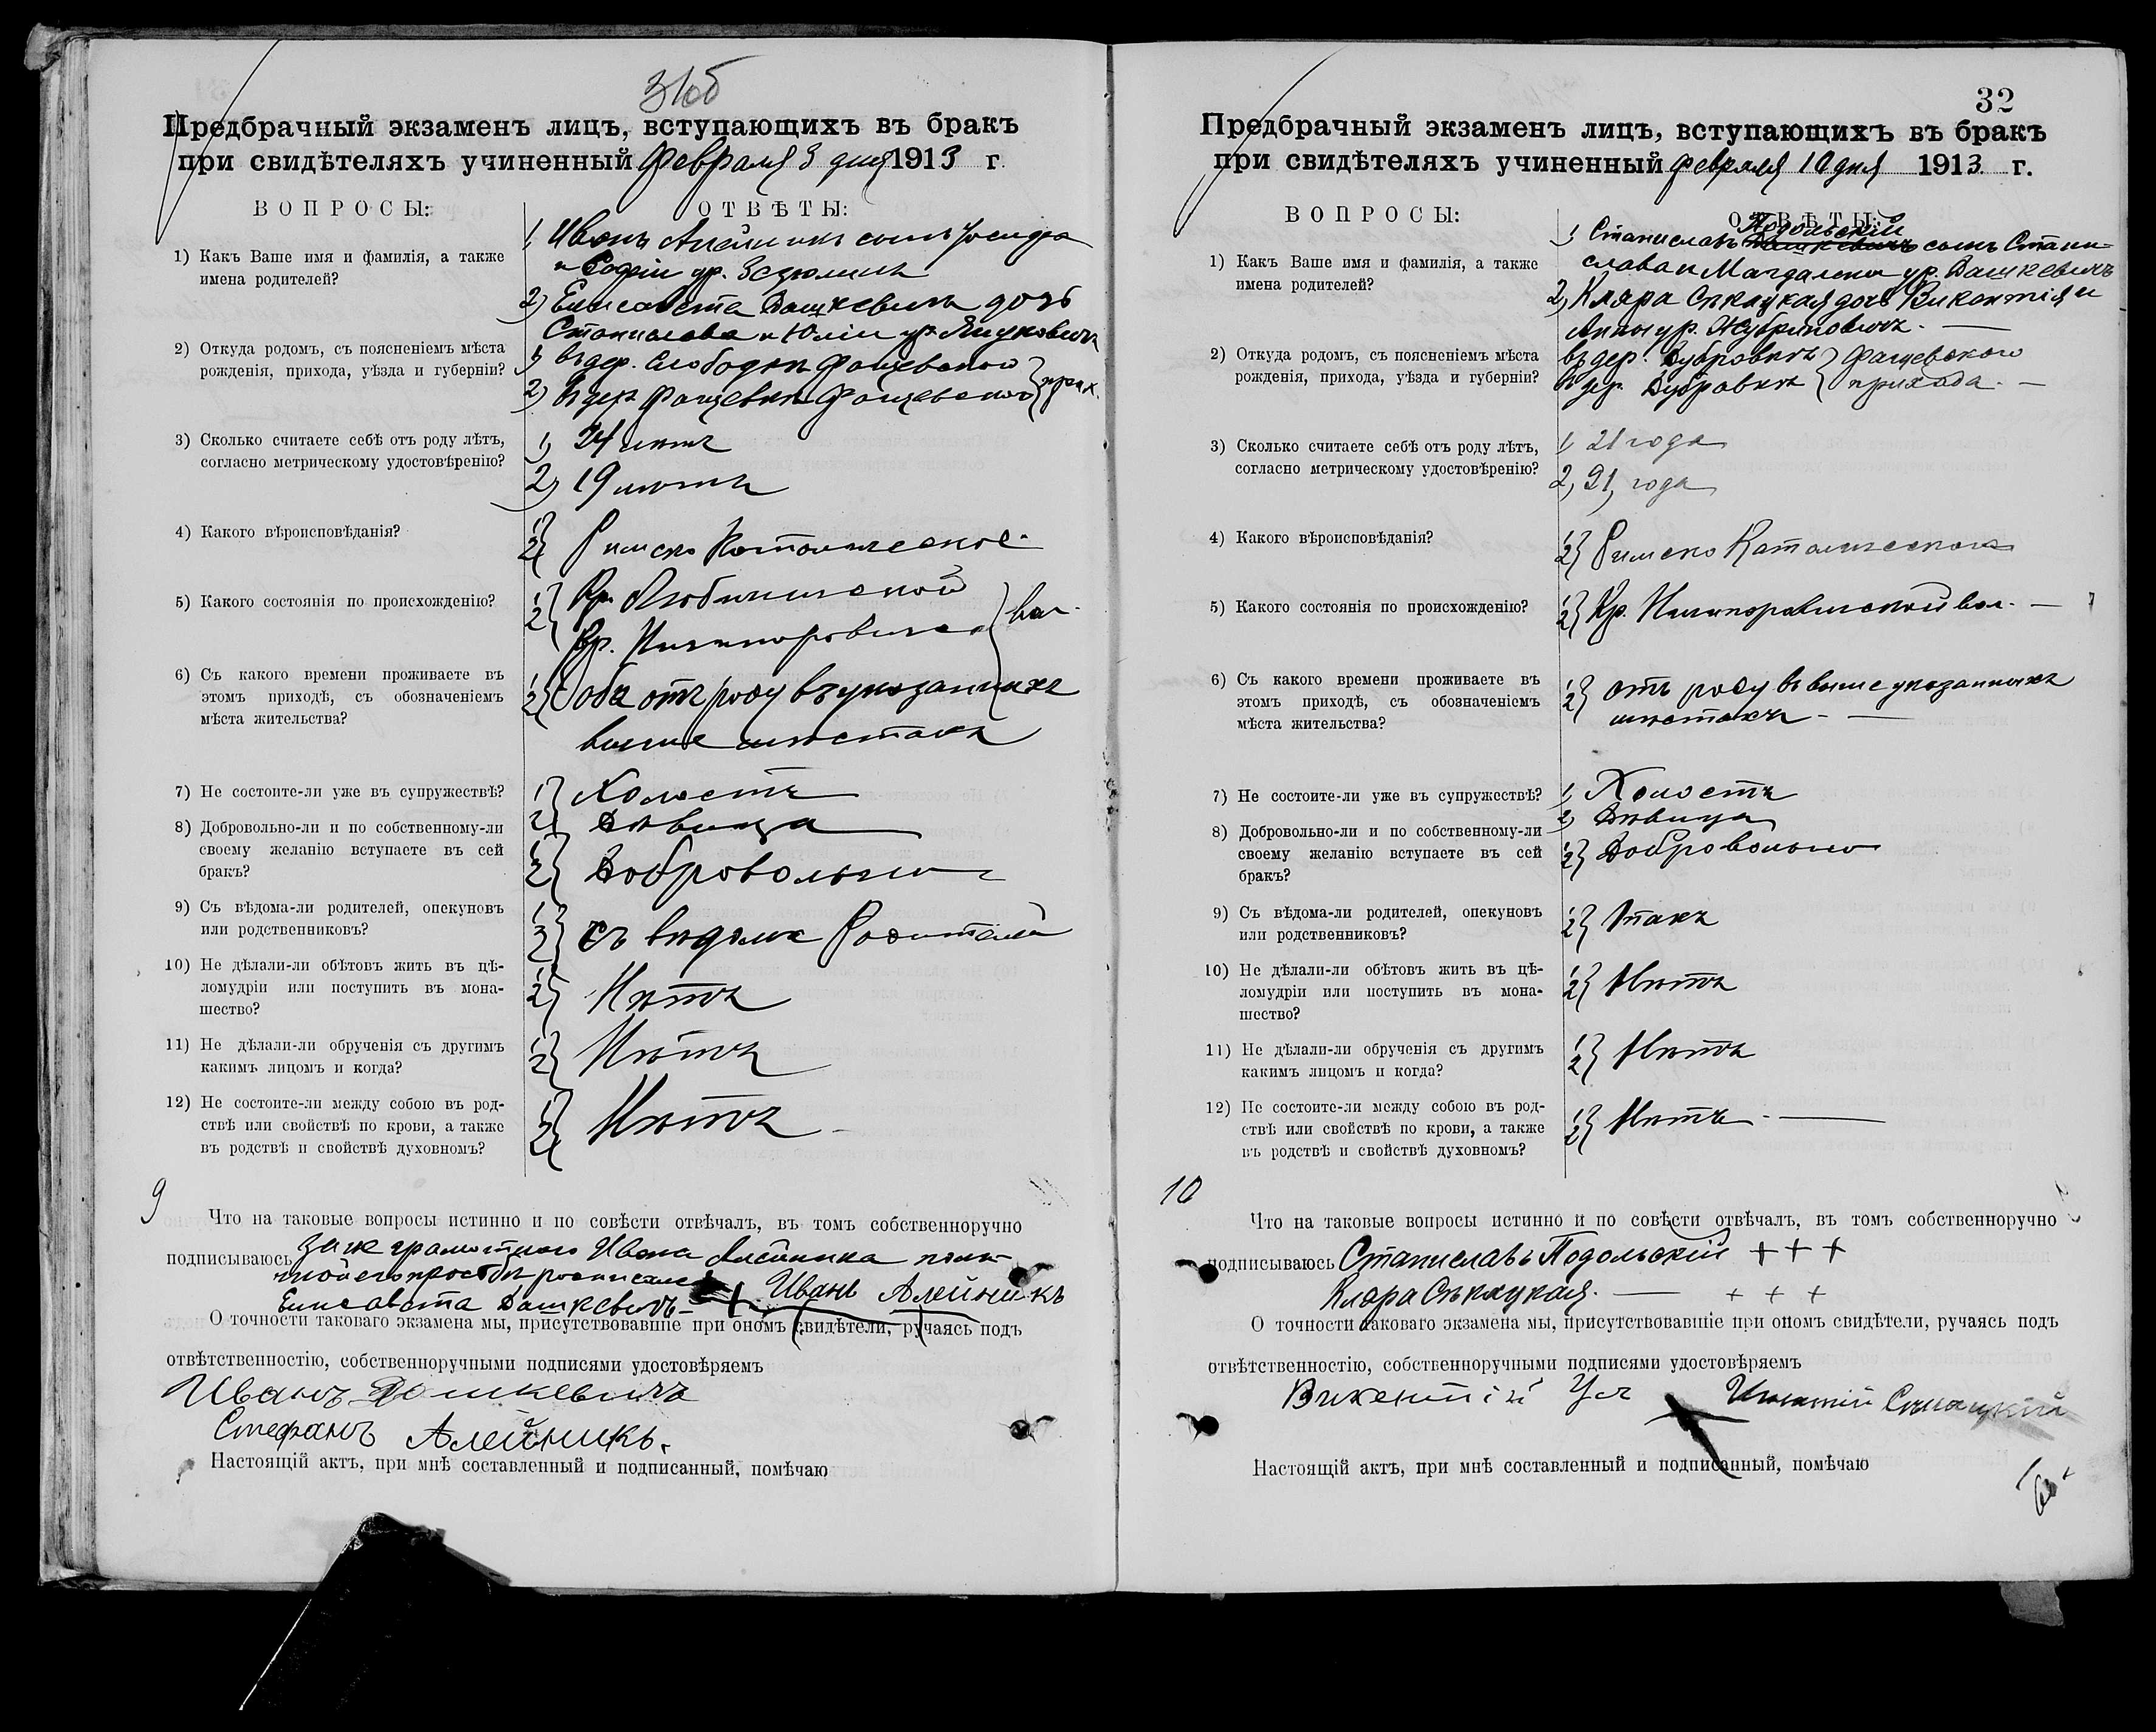 31об
Предбрачный экзаменъ лицъ, вступающихъ въ бракъ
при свидѣтеляхъ учиненный Февраля 3 дня 1913 г.
ВОПРОСЫ:
ОТВѢТЫ:
1) Какъ Ваше имя и фамилія, а также
имена родителей?
1) Иванъ Алейникъ сынъ
и Софіи ур.
2) Елисавета Дашкевичъ дочь
Станислава и Юліи ур. Януковичъ
2) Откуда родомъ, съ поясненіемъ мѣста
рожденія, прихода, уѣзда и губерніи?
1) въ дер. Слободкѣ Фащевского
2) въ дер. Фащевкѣ Фащевского } прих.
3) Сколько считаете себѣ отъ роду лѣтъ,
согласно метрическому удостовѣренію?
1) 24 лѣтъ
2) 19 лѣтъ
4) Какого вѣроисповѣданія?
1 2} Римско Католическое.
5) Какого состоянія по происхожденію?
1 2} Кр.
Кр. } вол.
6) Съ какого времени проживаете въ
этомъ приходѣ, съ обозначеніемъ
мѣста жительства?
1 2} оба отъ роду въ указанныхъ
выше мѣстахъ
7) Не состоите-ли уже въ супружествѣ?
1) Холостъ
2) Дѣвица
8) Добровольно-ли и по собственному-ли
своему желанію вступаете въ сей
бракъ?
1 2} Добровольно
9) Съ вѣдома-ли родителей, опекуновъ
или родственниковъ?
1 2} Съ вѣдома Родителей
10) Не дѣлали-ли обѣтовъ жить въ цѣ-
ломудріи или поступить въ мона-
шество?
1 2} Нѣтъ
11) Не дѣлали-ли обрученія съ другимъ
какимъ лицомъ и когда?
1 2} Нѣтъ
12) Не состоите-ли между собою въ род-
ствѣ или свойствѣ по крови, а также
въ родствѣ и свойствѣ духовномъ?
1 2} Нѣтъ
9
Что на таковые вопросы истинно и по совѣсти отвѣчалъ, въ томъ собственноручно
подписываюсь за неграмотного Ивана Алейника
его просьбѣ
Иванъ Алейникъ
Елисавета Дашкевичъ
О точности таковаго экзамена мы, присутствовавшіе при ономъ свидѣтели, ручаясь подъ
отвѣтственностію, собственноручными подписями удостовѣряемъ
Иванъ Дошкевичъ
Стефанъ Алейникъ.
Настоящій актъ, при мнѣ составленный и подписанный, помѣчаю
32
Предбрачный экзаменъ лицъ, вступающихъ въ бракъ
при свидѣтеляхъ учиненный Февраля 10 дня 1913 г.
ВОПРОСЫ:
ОТВѢТЫ:
1) Какъ Ваше имя и фамилія, а также
имена родителей?
Подольскій
1) Станиславъ Дашкевичъ сынъ Стани-
слава и Магдалены ур. Дашкевичъ
2) Клара Спкацкая дочь Викентія и
Анны ур.
2) Откуда родомъ, съ поясненіемъ мѣста
рожденія, прихода, уѣзда и губерніи?
въ дер. Дубровкѣ } Фащевского
въ дер. Дубровкѣ } прихода.
3) Сколько считаете себѣ отъ роду лѣтъ,
согласно метрическому удостовѣренію?
1) 21 года
2) 21 года
4) Какого вѣроисповѣданія?
1 2} Римско Католическаго
5) Какого состоянія по происхожденію?
1 2} Кр. вол.
6) Съ какого времени проживаете въ
этомъ приходѣ, съ обозначеніемъ
мѣста жительства?
1 2} отъ роду въ выше указанныхъ
мѣстахъ
7) Не состоите-ли уже въ супружествѣ?
1) Холостъ
2) Дѣвица
8) Добровольно-ли и по собственному-ли
своему желанію вступаете въ сей
бракъ?
1 2} Добровольно
9) Съ вѣдома-ли родителей, опекуновъ
или родственниковъ?
1 2} Такъ
10) Не дѣлали-ли обѣтовъ жить въ цѣ-
ломудріи или поступить въ мона-
шество?
1 2} Нѣтъ
11) Не дѣлали-ли обрученія съ другимъ
какимъ лицомъ и когда?
1 2} Нѣтъ
12) Не состоите-ли между собою въ род-
ствѣ или свойствѣ по крови, а также
въ родствѣ и свойствѣ духовномъ?
1 2} Нѣтъ
10
Что на таковые вопросы истинно и по совѣсти отвѣчалъ, въ томъ собственноручно
подписываюсь Станиславъ Подольскій + + +
Клара + + +
О точности таковаго экзамена мы, присутствовавшіе при ономъ свидѣтели, ручаясь подъ
отвѣтственностію, собственноручными подписями удостовѣряемъ
Викентій
Настоящій актъ, при мнѣ составленный и подписанный, помѣчаю